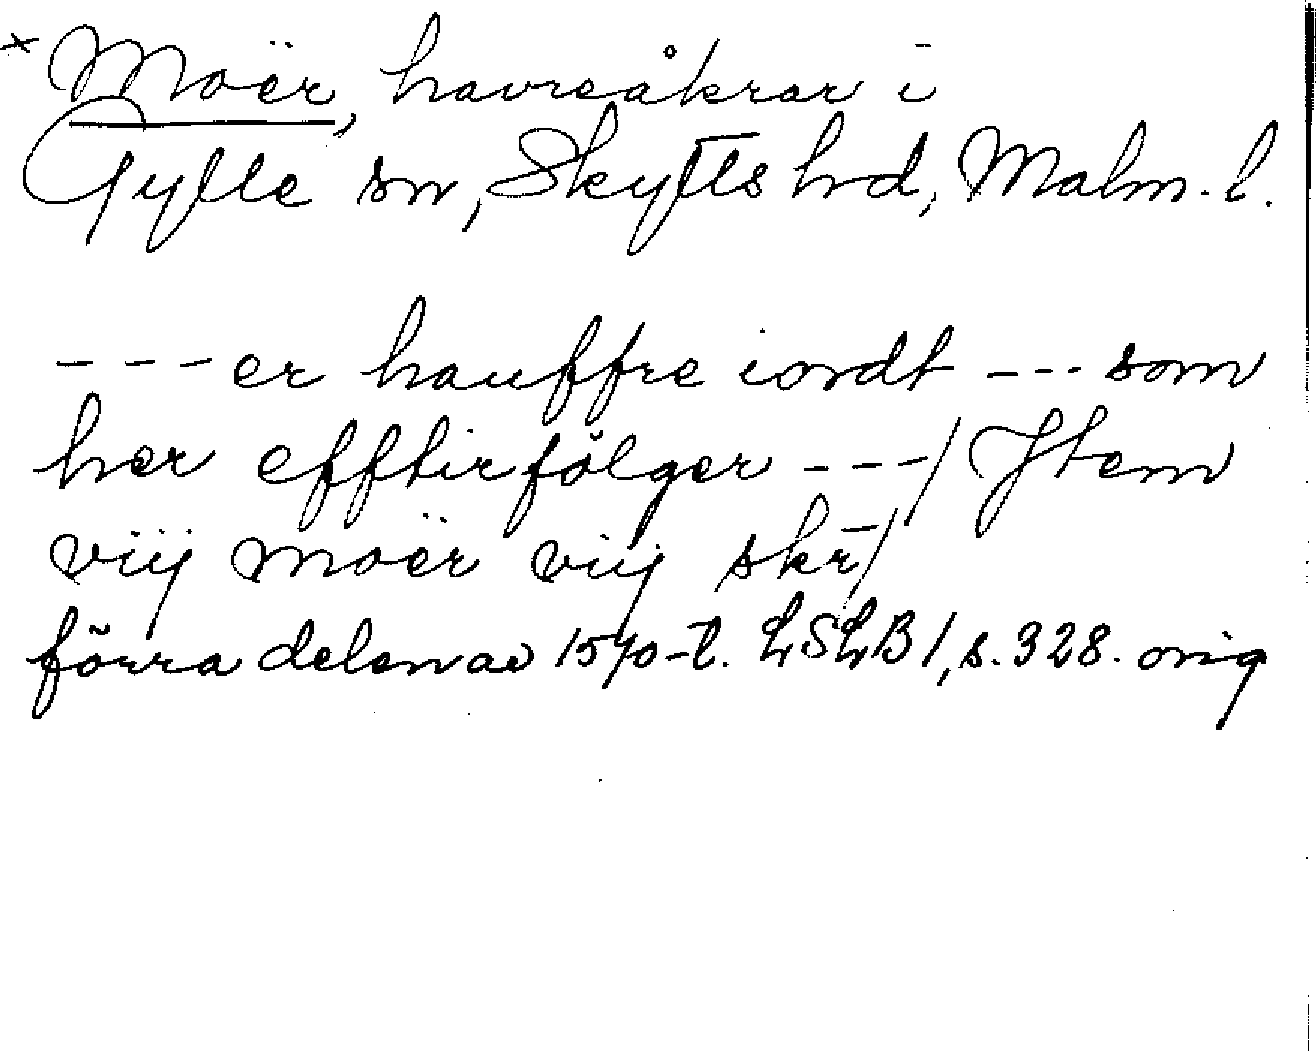 × Moër, havreåkrar i
Gylle sn, Skytts hd, Malm. l.
--- er hauffre iordt --- som
her efftirfölger ---/ Jtem
viij moër viij skr̄/
förra delen av 1570-t. LSLB 1, s. 328. orig